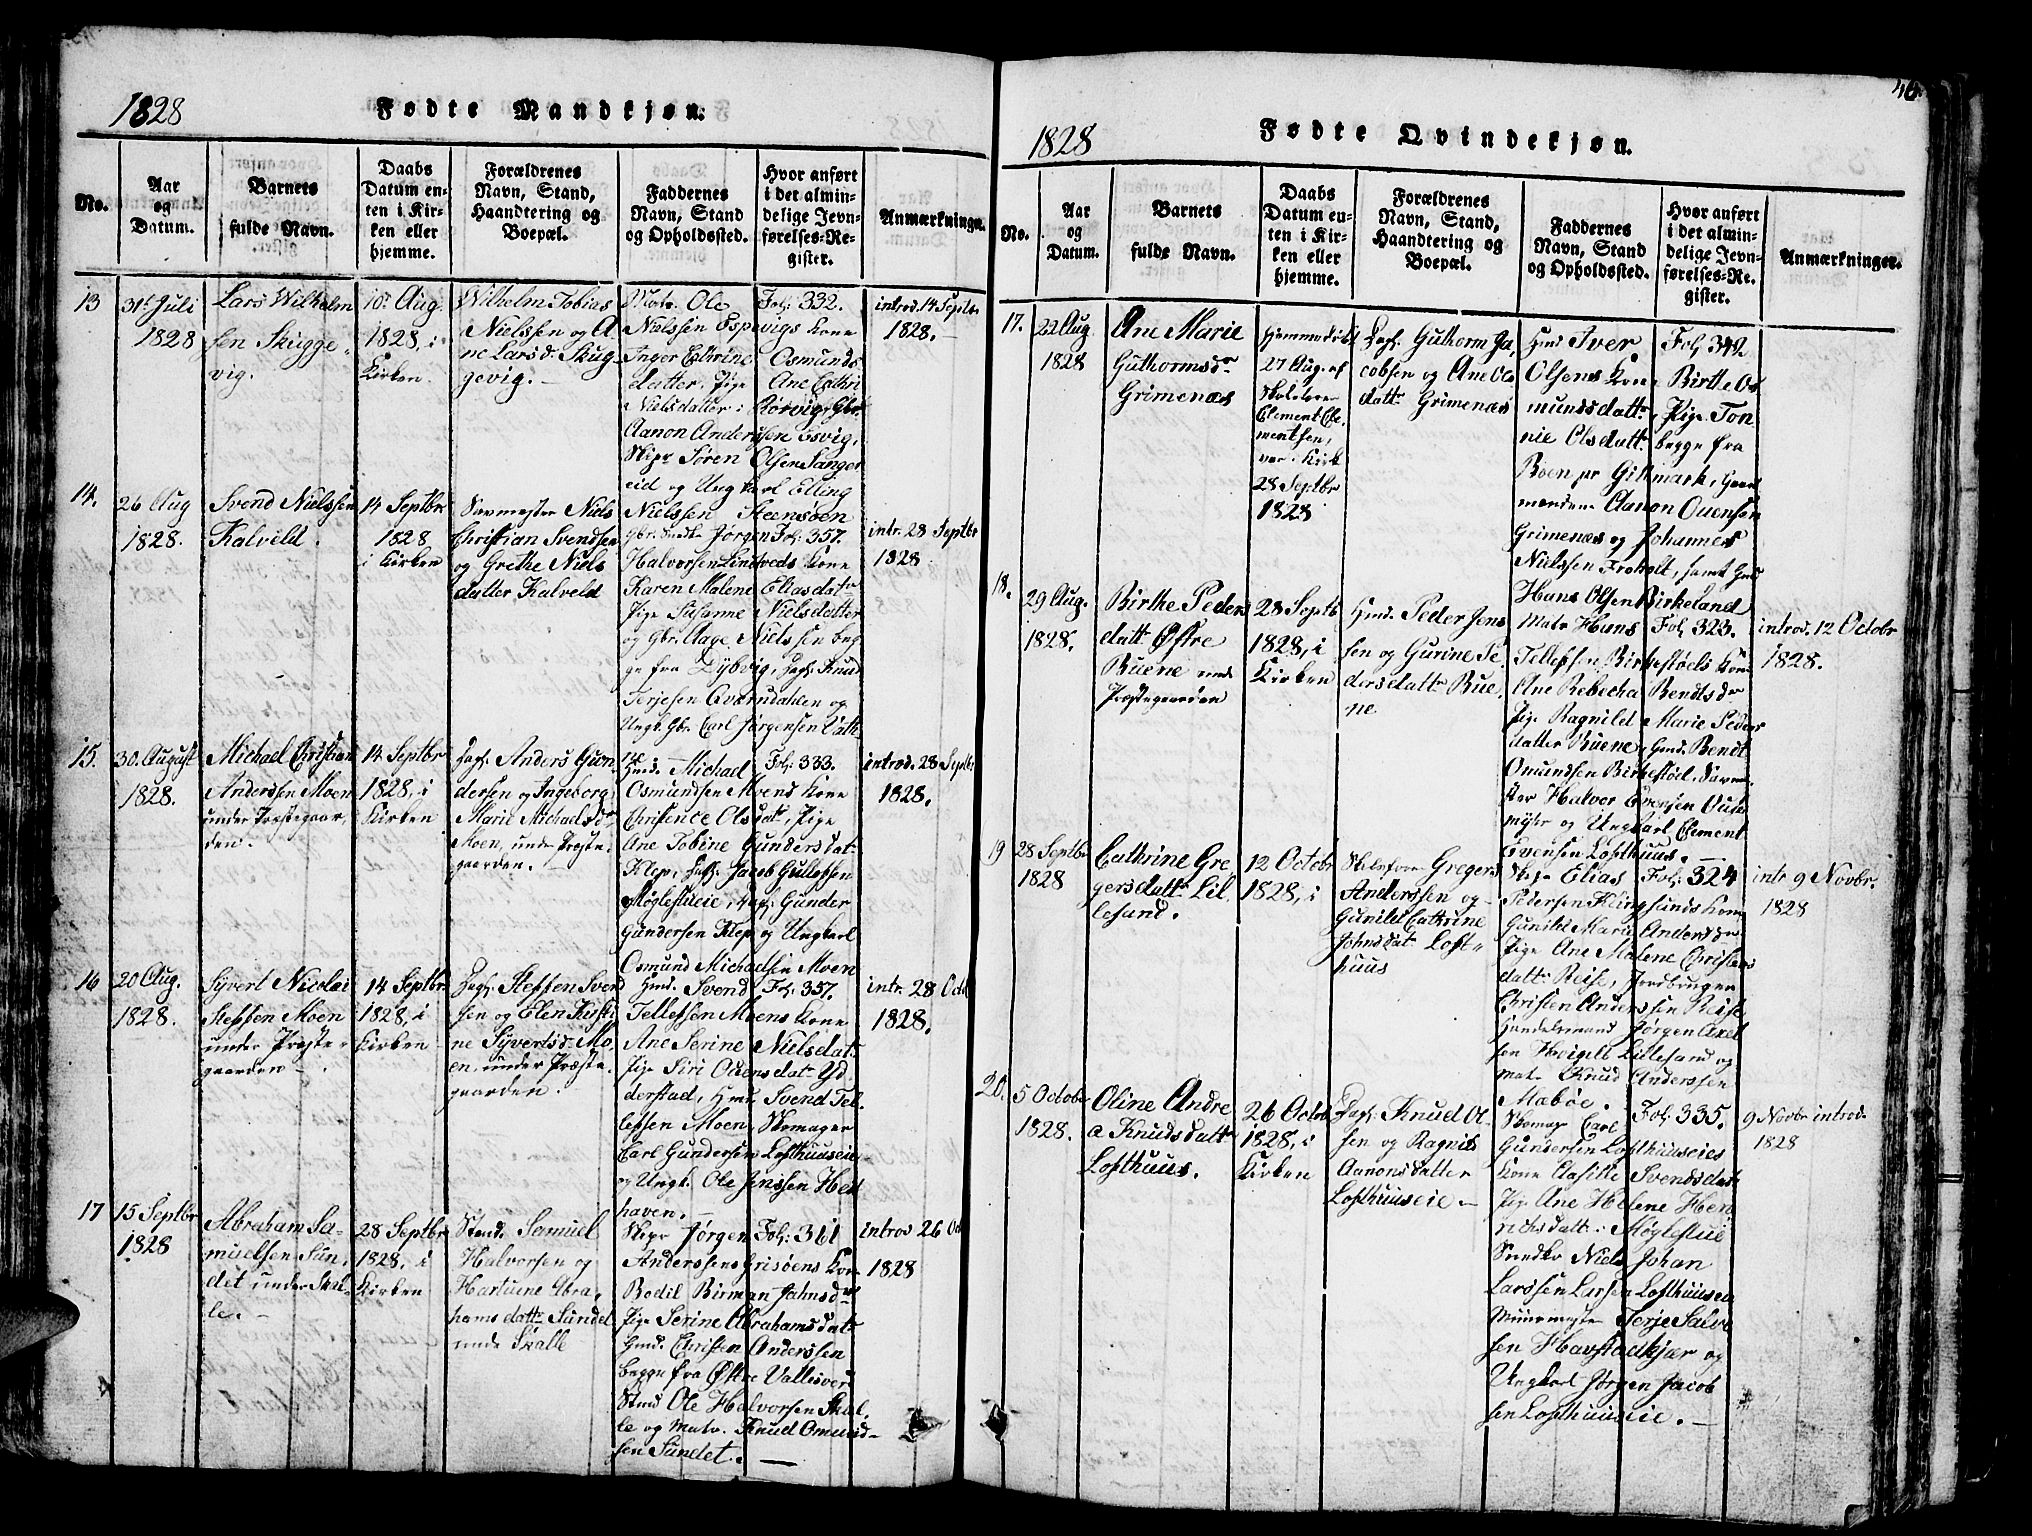 1828 Fødte Mandkjøn.
No.
Aar
og
Datum.
Barnets
fulde Navn.
Daabs
Datum en-
ten i Kir-
ken eller
hjemme.
Forældrenes
Navn, Stand,
Haandtering og
Boepæl.
Faddernes
Navn, Stand
og Opholdssted.
Hvor anført
i det almin-
delige Jevn-
førelses-Re-
gister.
Anmærkninger.
13
31t Juli
1828
Lars Wilhelm
sen Skugge-
vig.
10t Aug.
1828, i
Kirken.
Wilhelm Tobias
Nielssen og A
ne Larsd. Skug-
gevig.
Matr. Ole
Nielssen Espevigs Kone
Inger Cathrine Osmunds
datter, Pige Ane Cathri
Nielsdatter i Rørvig, Gbr.
Aanon Anderssen Esvig,
Skipr Søren Olsen Sanger
eid og Ungkarl Elling
Nielssen Steensøen
Fol: 332.
introd. 14 Septbr
1828.
14.
26 Aug
1828.
Svend Nielssen
Kalveld.
14 Septbr
1828
i Kirken
Savmester Niels
Christian Svendsen
og Grethe Niels
datter Kalveld
Jørgen
Halvorsen Lindtveds Kone
Karen Malene Eliasdatr
Pige Susanne Nielsdatter
og Gbr. Aage Nielssen beg
ge fra Dybvig, Knud
Terjesen Qværndahlen og
Ungk. Gbr. Carl Jørgensen
Fol: 357.
intr. 28 Septbr
1828
15.
30. August
1828.
Michael Christian
Anderssen Moen
under Præstegaar-
den.
14 Septbr
1828, i
Kirken
Anders Gun-
dersen og Ingeborg
Marie Michaelsdr
Moen, under Præste-
gaarden.
Hmd. Michael
Osmundsen Moens Kone
Christence Olsdat, Pige
Ane Tobine Gundersdat
Klep, Jacob Gullefsen
Møglestueie, Gunder
Gundersen Klep og Ungkarl
Osmund Michaelsen Moen
Fol: 333.
introd. 28 Septbr
1828.
16
20 Aug.
1828.
Syvert Nicolai
Steffsen Moen
under Præste-
gaarden
14 Septbr.
1828, i
Kirken
Steffen Svend
sen og Elen Kirsti
ne Syvertsd. Mo-
en, under Præste-
gaarden.
Hmd. Svend
Tellefsen Moens Kone
Ane Serine Nielsdat
Pige Siri Ouensdat Yd
derstad, Hmd Svend Tel
lefsen Moen, Skomager
Carl Gundersen Lofthuuseie
og Ungk. Ole Jenssen Hei
haven.
Fol: 357.
intr. 28 Oct
1828.
17
15 Septbr
1828
Abraham Sa-
muelsen Sun-
det under Skal-
le.
28 Septbr
1828, i
Kirken
Samuel
Halvorsen og
Abra-
hams datt Sundet
under Skalle
Skipr Jørgen
Anderssens Grisøens Kone
Bodil Birman Jahnsdr
Pige Serine Abrahamsdat
Hmd. Christen Anderssen
begge fra Øftre Vallesverd
Ole Halvorsen Skal-
le og Matr. Knud Omund-
sen Sundet.
Fol: 361
introd 26 Oct
1828
46.
1828 Fødte Qvindekjøn.
No.
Aar
og
Datum.
Barnets
fulde Navn.
Daabs
Datum en-
ten i Kir-
ken eller
hjemme.
Forældrenes
Navn, Stand,
Haandtering og
Boepæl.
Faddernes
Navn, Stand
og Opholdssted.
Hvor anført
i det almin-
delige Jevn-
førelses-Re-
gister.
Anmærkninger.
17.
22 Aug
1828
Ane Marie
Guthormsdr
Grimenæs
Hjemmedøbt
27 Aug. af
Skolelærer
Clement Cle-
mentsen,
var i Kirk
28 Septbr
1828
Guthorm Ja-
cobsen og Ane Ols
datt. Grimenæs
Hmd Iver
Olsens Kone, Birthe Os
mundsdatt., Pige Ton
nie Olsdatt. begge fra
Boen pr Gitmark, Gaard
mændene Aanon Ouensen
Grimenæs og Johannes
Nielssen Froholt, samt
Hans Olsen Birkeland
Fol: 342.
18.
29 Aug.
1828.
Birthe Peders
datt. Øftre
Buene under
Præstegaarden
28 Septb
1828, i
Kirken
Hmd. Peder Jens
sen og Gurine Pe-
dersdattr Bue-
ne
Matr Hans
Tellefsen Birkestøels Kone
Ane Rebecha Bendtsdr
Pige Ragnild Marie Peders
datter Buene, Hmd. Bendt
Omundsen Birkestød, Savme-
ster Halvor Evensen Ouse
myhr og Ungkarl Clement
Evensen Lofthuus.
Fol: 323.
introd. 12 Octobr
1828.
19
28 Septbr
1828
Cathrine Gre-
gersdattr Lil-
lesand.
12 Octobr
1828, i
Gregers
Anderssen og
Gunild Cathrine
Johnsdat Loft-
huus
Elias
Pedersen Klingsunds Kone
Gunild Marie Andersdr
Pige Ane Malene Christens
datt. Reise, Jordbruger
Christen Anderssen Reise,
Handelsmand Jørgen Axel
sen Hvigelt Lillesand og
Matr. Knud Anderssen
Mabøe.
Fol: 324
intr 9 Novbr.
1828
20.
5 Octobr
1828.
Oline Andre
a Knudsdatt
Lofthuus.
26 Octob
1828, i
Kirken
Knud Ol-
sen og Ragnild
Aanonsdatter
Lofthuuseie
Skomag Carl
Gundersen Lofthuuseies
Kone Aasille Svendsdat
Pige Ane Helene Hen
richsdatt. Møglestue
Snedker Niels Johan
Larssen Larsen Lofthuuseie
Muurmester Terje Salve
sen Havstadkjær og
Ungkarl Jørgen Jacob
sen Lofthuuseie.
Fol: 335.
9 Novbr introd.
1828